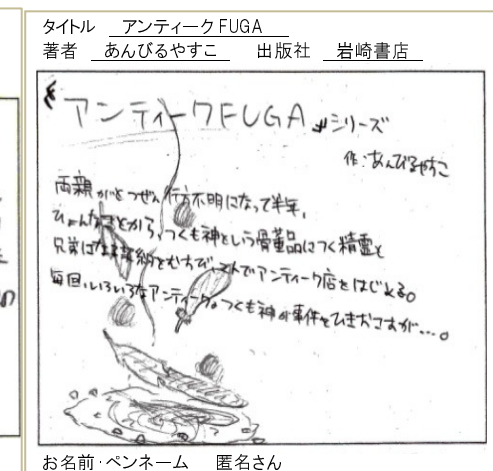 タイトル アンティークFUGA
著者 あんびるやすこ 出版社 岩崎書店
アンティークFUGA シリーズ
作:あんびるやすこ
両親がとつぜん行方不明になって半年、
ひょんなことから、つくも神という骨董品につく精霊と
兄弟になる契約をむすび、3人でアンティーク店をはじめる。
毎回、いろいろなアンティーク。つくも神が事件をひきおこすが…。
お名前・ペンネーム 匿名さん